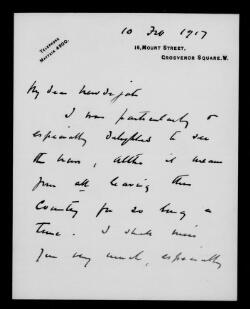 10 Feb 1917
TELEPHONE
MAYFAIR 4900.
16, MOUNT STREET,
GROSVENOR SQUARE. W.
My dear Newdigate
I was particularly &
especially delighted to see
the news, altho it means
your all leaving this
Country for so long a
time. I shall miss
you very much, especially